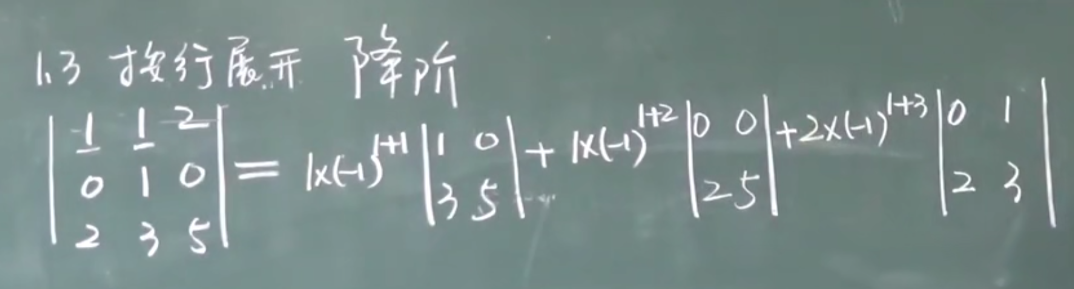 1.3 按行展开 降阶
| 1 1 2 |
| 0 1 0 | = 1×(-1)^{1+1} | 1 0 ; 3 5 | + 1×(-1)^{1+2} | 0 0 ; 2 5 | + 2×(-1)^{1+3} | 0 1 ; 2 3 |
| 2 3 5 |